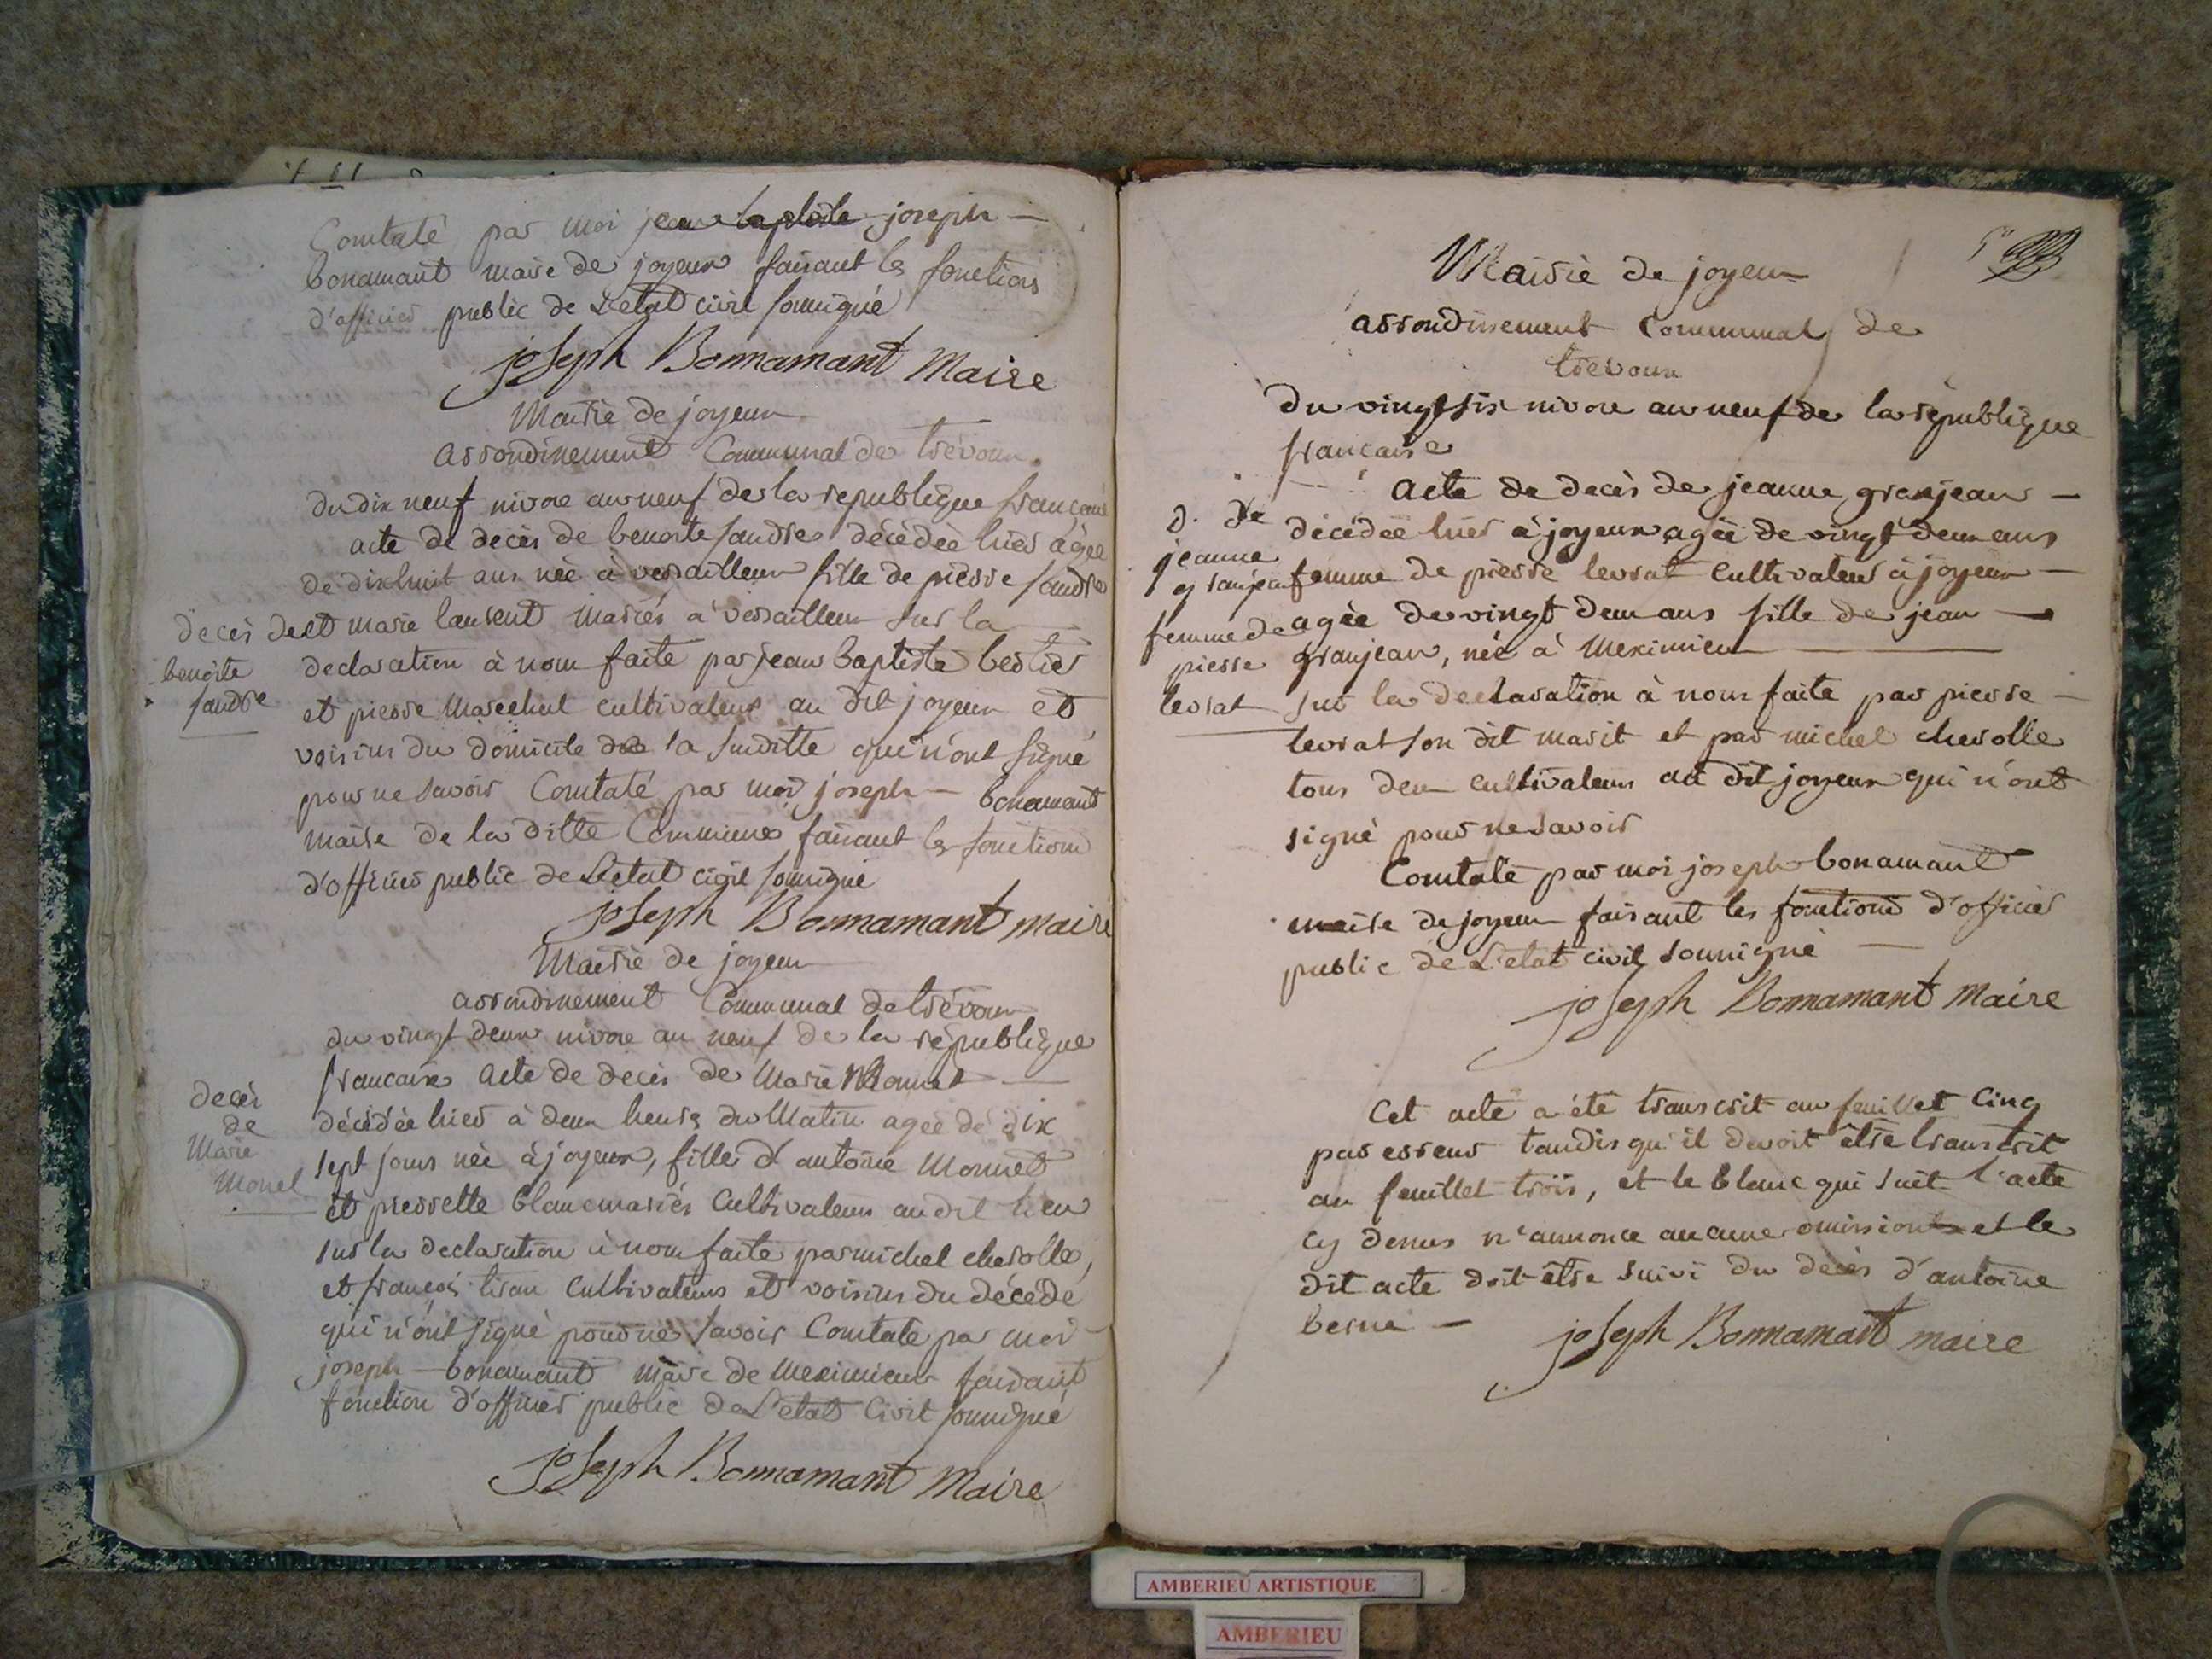 Constaté par moi jean baptiste joseph —
bonamant maire de joyeux faisant les fonctions
d'officier public de L'etat civil soussigné
joseph Bonnamant Maire
Mairie de joyeux
arrondissement Communal de trévoux
du dix neuf nivose an neuf de la republique française
acte de decès de benoite sandre décédée hier agée
de dixhuit ans née à versailleux fille de pierre sandre
et marie laurent mariés à versailleux sur la
declaration à nous faite par jean baptiste bertier
et pierre Marechal cultivateurs au dit joyeux et
voisins du domicile de la susditte qui n'ont signé
pour ne savoir Constaté par moi joseph — bonamant
maire de la ditte Commune faisant les fonctions
d'officier public de L'etat civil soussigné
joseph Bonnamant maire
decès de
benoite
sandre
Mairie de joyeux
arrondissement Communal de trévoux
du vingt deux nivose an neuf de la république
francaise acte de decès de Marie Monnet —
décédée hier à deux heures du Matin agée de dix
sept jours née à joyeux, fille d'antoine Monnet
et pierrette blanc mariés Cultivateurs audit lieu
sur la declaration à nous faite par michel cherolle,
et françois tisan Cultivateurs et voisins du décédé
qui n'ont signé pour ne savoir Constaté par moi
joseph — bonamant maire de meximieux faisant
fonction d'officier public de L'etat Civil soussigné
joseph Bonnamant Maire
decès
de
Marie
Monel
5e
Mairie de joyeux
arrondissement Communal de
trévoux
du vingt six nivose an neuf de la république
francaise
acte de decès de jeanne granjean —
décédée hier à joyeux agée de vingt deux ans
femme de pierre levrat cultivateur à joyeux —
agée de vingt deux ans fille de jean —
granjean, née à Meximieux
sur la declaration à nous faite par pierre —
levrat son dit marit et par michel cherolle
tous deux cultivateurs au dit joyeux qui n'ont
signé pour ne savoir
Constaté par moi joseph bonamant
maire de joyeux faisant les fonctions d'officier
public de L'etat civil soussigné —
joseph Bonnamant Maire
d. de
jeanne
granjean
femme de
pierre
levrat
Cet acte a été transcrit au feuillet Cinq
par erreur tandis qu'il devoit être transcrit
au feuillet trois, et le blanc qui suit l'acte
cy dessus n'annonce aucune omission et le
dit acte doit être suivi du decès d'antoine
berne —
joseph Bonnamant maire
AMBERIEU ARTISTIQUE
AMBERIEU